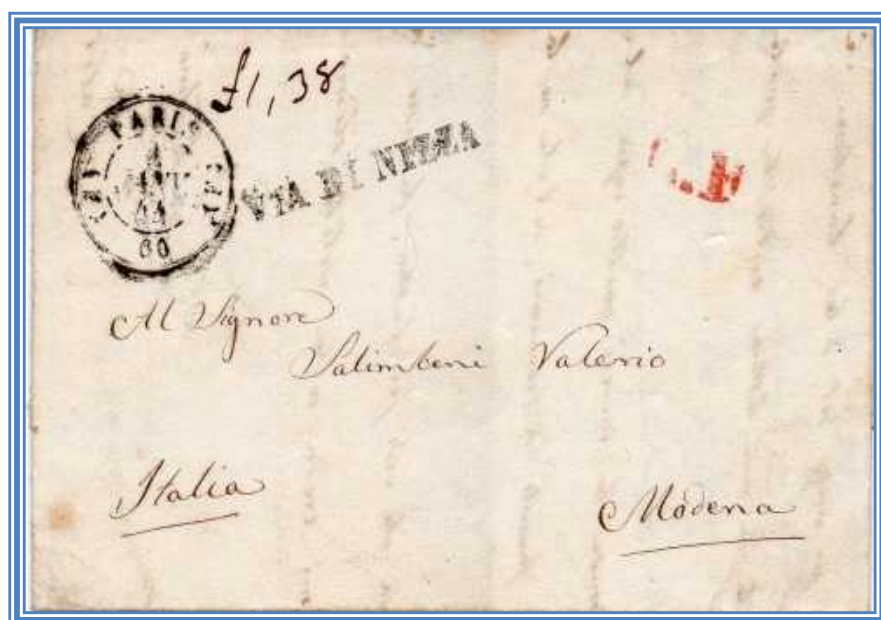 £1,38
PARIS
4
44
60
VIA DI NIZZA
Al Signore
Salimbeni Valerio
Italia
Modena